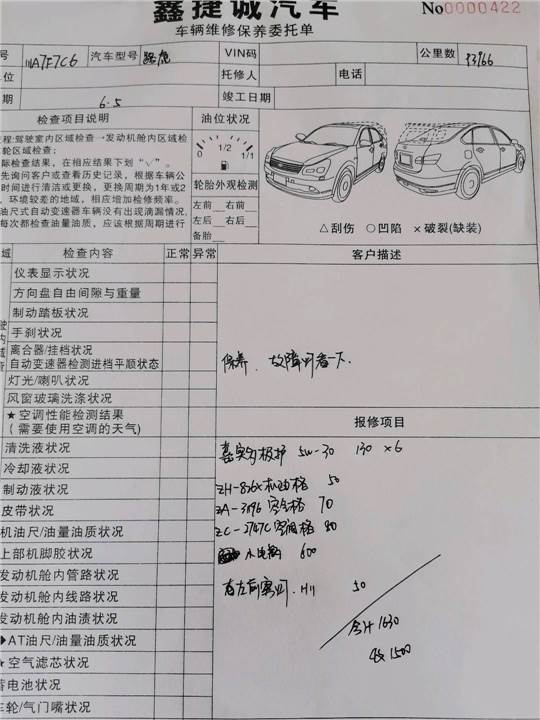 鑫捷诚汽车
No0000422
车辆维修保养委托单
号 A7F7C6 汽车型号 路虎 VIN码 公里数 93966
位 托修人 电话
期 6.5 竣工日期
检查项目说明 油位状况
程:驾驶室内区域检查→发动机舱内区域检
轮区域检查;
际检查结果,在相应结果下划“√”。
先询问客户或查看历史记录,根据车辆公
时间进行清洁或更换,更换周期为1年或2
,环境较差的地域,相应增加检修频率。
油尺式自动变速器车辆没有出现滴漏情况,
每次都检查油量油质,应该根据周期进行
0 1/2 1/1
轮胎外观检测
左前 右前
左后 右后
备胎
△刮伤 ○凹陷 ×破裂(缺装)
域 检查内容 正常 异常 客户描述
仪表显示状况
方向盘自由间隙与重量
制动踏板状况
手刹状况
离合器/挂档状况
自动变速器检测进档平顺状态
保养、故障灯看一下.
灯光/喇叭状况
风窗玻璃洗涤状况
★空调性能检测结果
(需要使用空调的天气)
报修项目
清洗液状况
嘉实多极护 5w-30 130 ×6
冷却液状况
制动液状况
ZH-826x机油格 50
皮带状况
ZA-3196 空气格 70
机油尺/油量油质状况
ZC-2747C 空调格 80
上部机脚胶状况
小电瓶 600
发动机舱内管路状况
发动机舱内线路状况
H11 50
发动机舱内油渍状况
合计 1630
▶AT油尺/油量油质状况
收1500
★空气滤芯状况
蓄电池状况
车轮/气门嘴状况